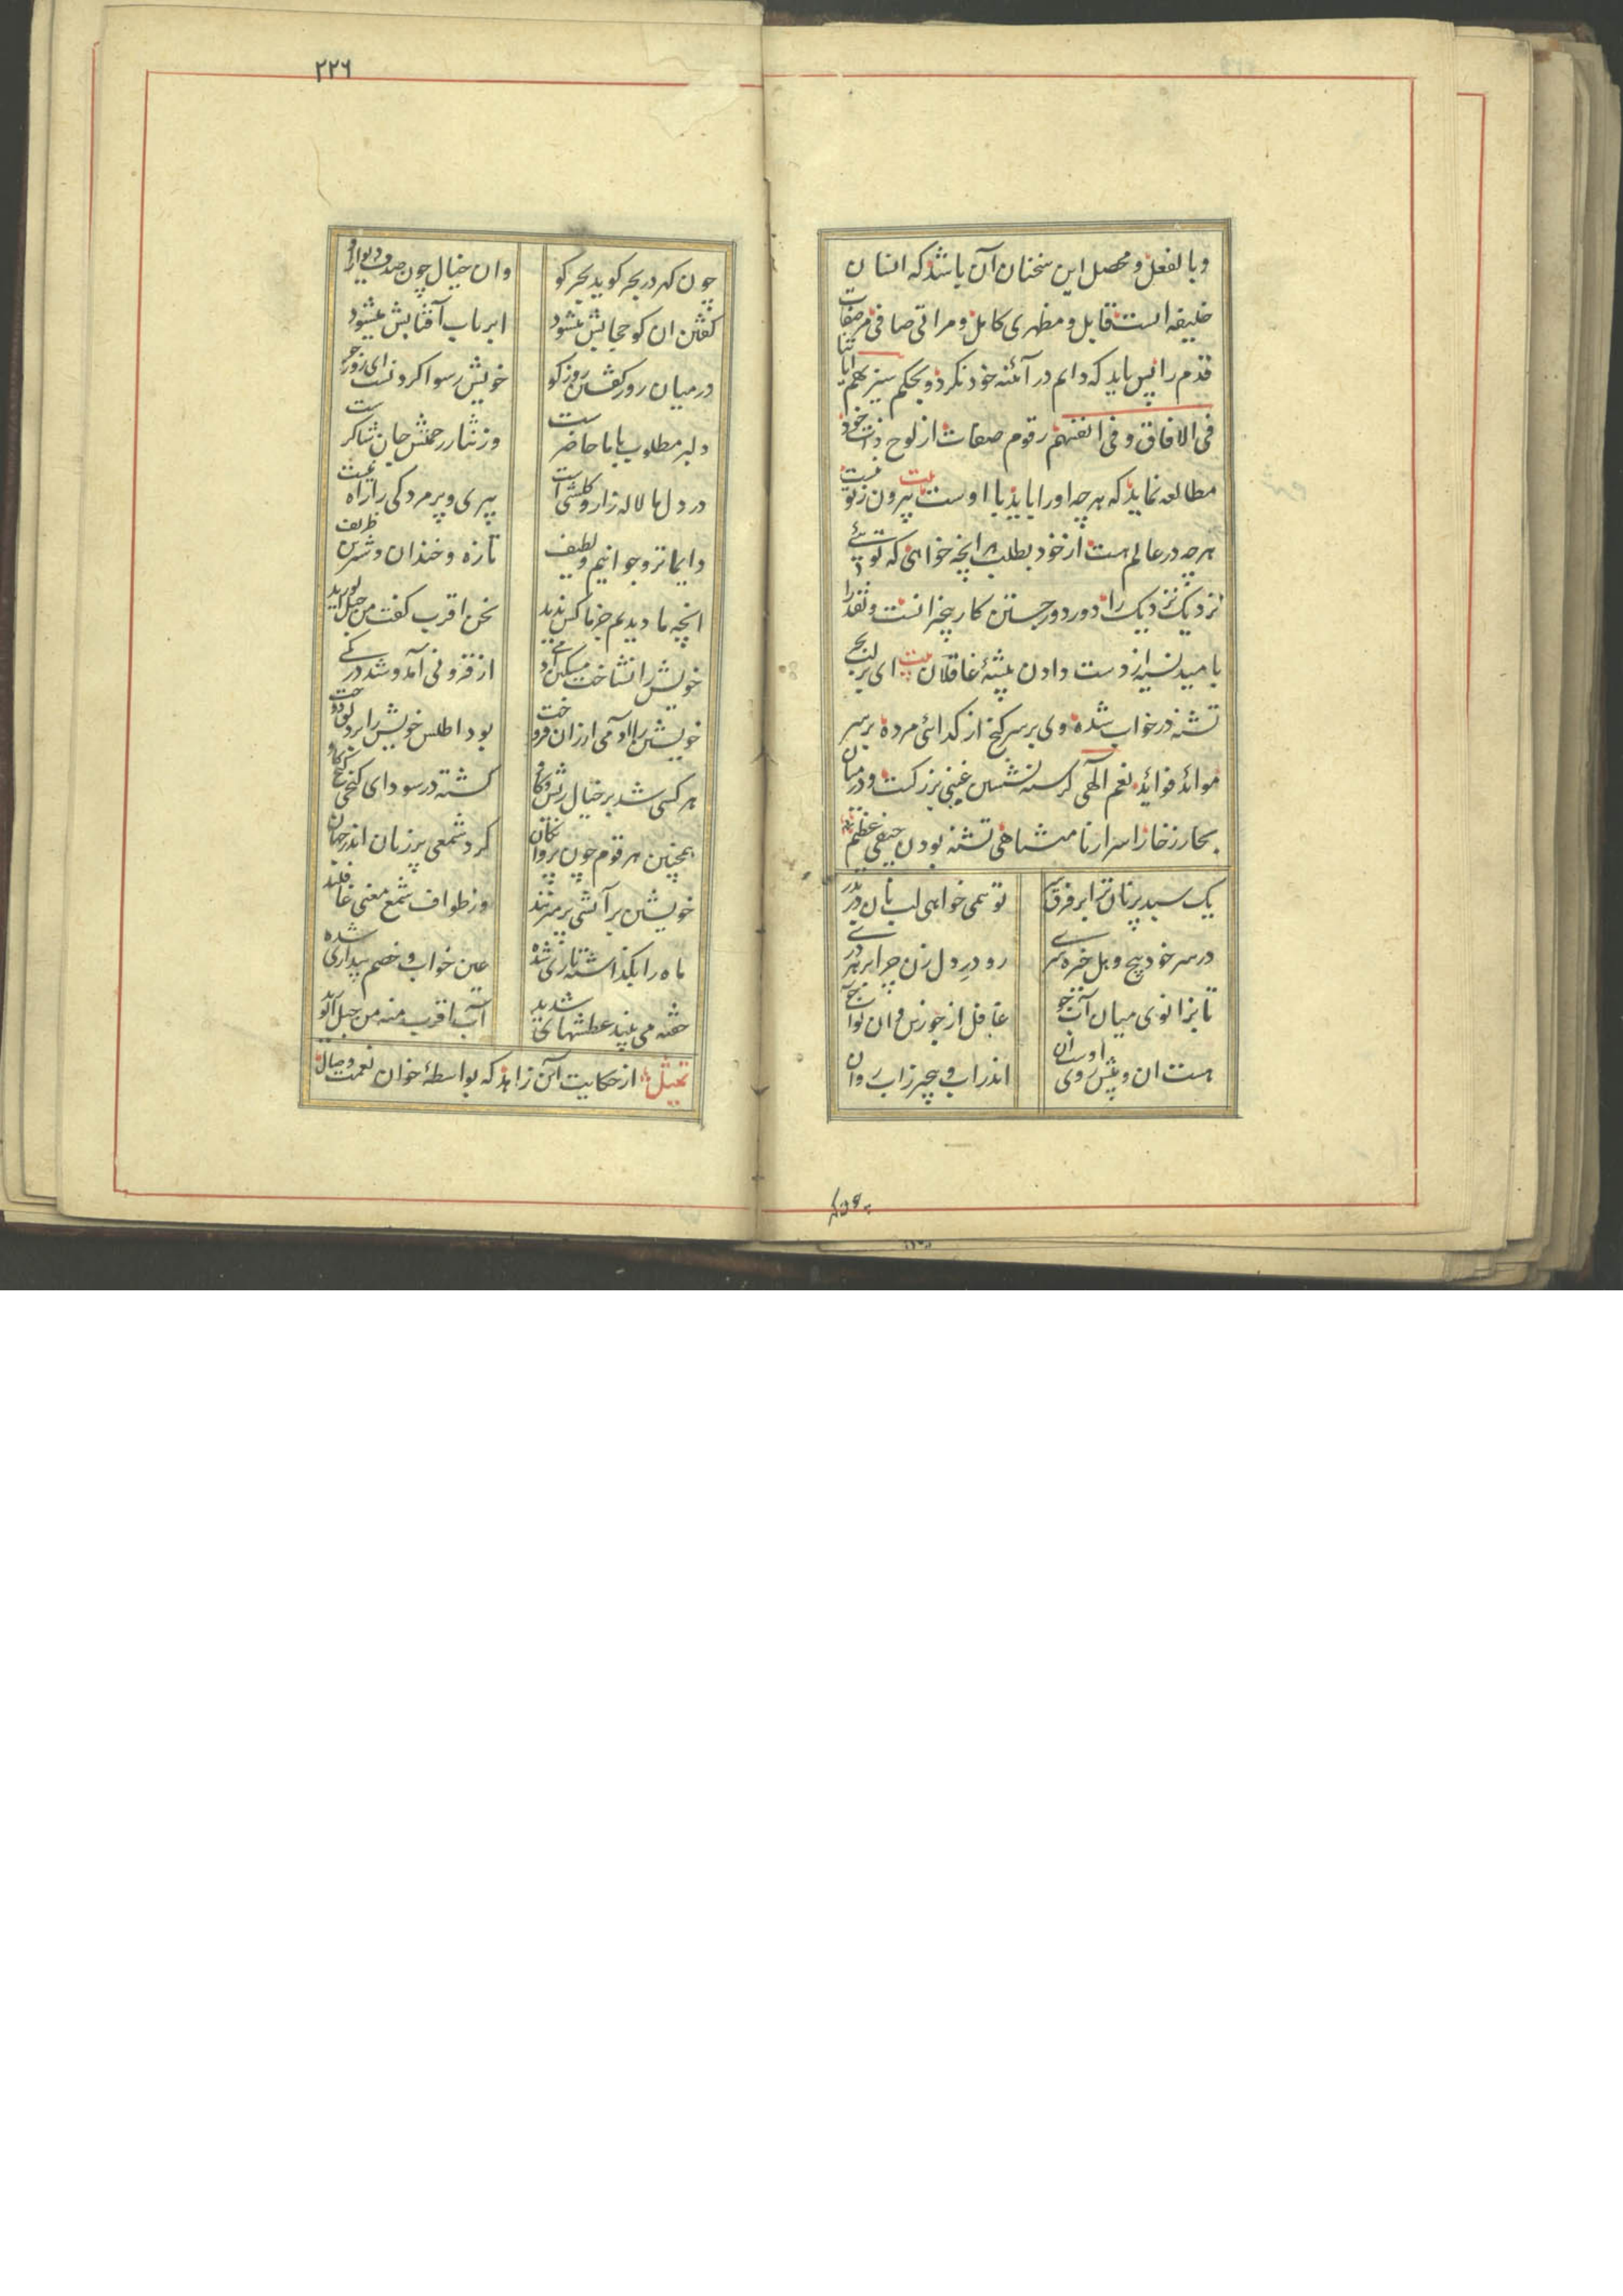 وبالفعل و محصل این سخنان آن باشد که انسان
خلیفه است قابل و مظهری کامل و مراتی صافی مر صفات
قدم را پس باید که دایم در آئنه خود نکرد و بحکم سنریهم ایاتنا
فی الافاق و فی انفسهم رقوم صفات از لوح ذات خود
مطالعه نماید که هر چه اورا باید با اوست بیت بیرون ز تو نیست
هر چه در عالم هست از خود بطلب هر انچه خواهی که توئی
نزدیک نزدیک را دور دور جستن کار بیخبرانست و نقد را
بامید نسیه از دست دادن پیشهٔ غافلان بیت ای بر لب بحر
تشنه در خواب شده وی بر سر کنج از کدائی مرده بر سر
موائد فوائد نعم الهی کرسنه نشستن غبنی بزرکست و در میان
بحار زخار اسرار نامتناهی تشنه بودن حیفی عظیم
یک سبد پر نان ترا بر فرق سر
تو همی خواهی لب نان در بدر
در سر خود پیچ و هل خیره سری
رو در دل زن چرا بر هر دری
تا بزانوی میان آب جو
غافل از خود زین و آن تو آب جو
هست ان و پیش روی اوست ان
اندر اب و بیخبر ز اب روان
۲۲٦
چون کهر در بحر کوید بحر کو
وان خیال چون صدف دیوار او
کفتن ان کو حجابش میشود
ابر باب آفتابش میشود
در میان روز کفتن روز کو
خویش رسوا کردنست ای روز جو
دلبر مطلوب با ما حاضر ست
وز نثار رحمتش جان شاکر ست
در دل ما لاله زار و کلشنی است
پیری و پژمردکی را راه نیست
دایما تر و جوانیم و لطیف
تازه و خندان و شیرین ظریف
انچه ما دیدیم جز ما کس ندید
نحن اقرب کفت من حبل الورید
خویش را نشناخت مسکین آدمی
از فزونی آمد و شد در کمی
خویشتن را آدمی ارزان فروخت
بود اطلس خویش را بر دلق دوخت
هر کسی شد بر خیال ریش کاو
کشته در سودای کنجی کنج کاو
همچنین هر قوم چون پروانکان
کرد شمعی پر زنان اندر جهان
خویشتن بر آتشی بر میزنند
وز طواف شمع معنی غافلند
ماه را بکذاشته تاری شده
عین خواب و خصم بیداری شده
خفته می بیند عطشهای شدید
آب اقرب منه من حبل الورید
تمثیل از حکایت آن زاهد که بواسطهٔ خوان نعمت وصال